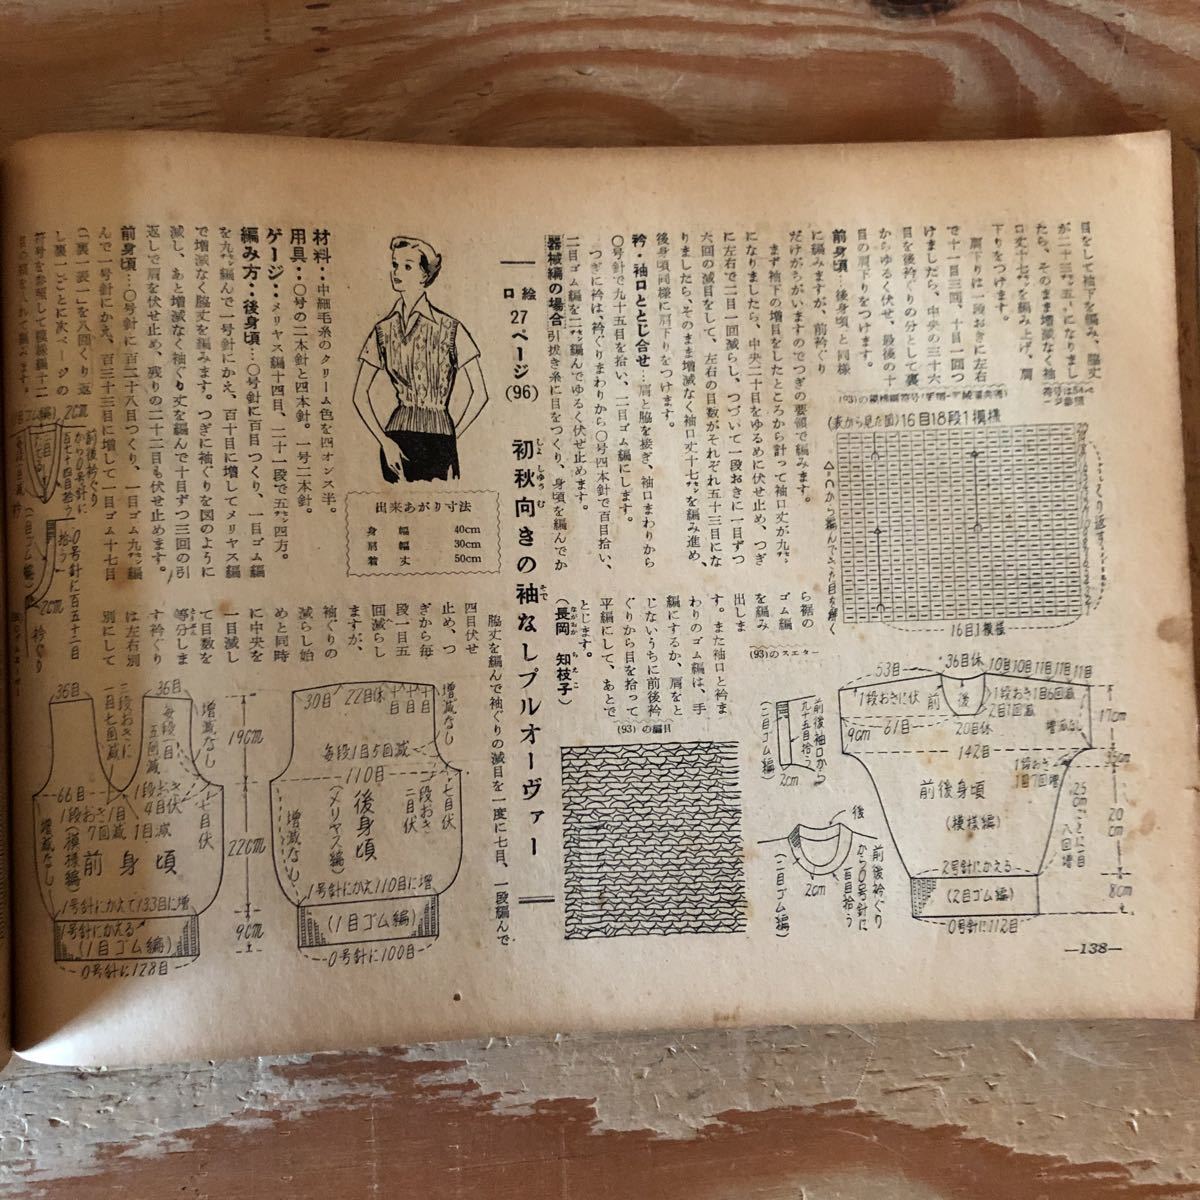 目をして袖下を編み、脇丈
たら、そのまま増減なく袖
口丈十七㌢を編み上げ、肩
下りをつけます。
肩下りは一段おきに左右
で十一目三回、十目一回つ
けましたら、中央の三十六
目を後衿ぐりの分として裏
からゆるく伏せ、最後の十
目の肩下りをつけます。
前身頃…後身頃と同様
に編みますが、前衿ぐり
だけがちがいますのでつぎの要領で編みます。
まず袖下の増目をしたところから計って袖口丈が九㌢
になりましたら、中央二十目をゆるめに伏せ止め、つぎ
に左右で二目一回減らし、つづいて一段おきに一目ずつ
六回の減目をして、左右の目数がそれぞれ五十三目にな
りましたら、そのまま増減なく袖口丈十七㌢を編み進め、
後身頃同様に肩下りをつけます。
衿・袖口ととじ合せ…肩と脇を接ぎ、袖口まわりから
〇号針で九十五目を拾い、二目ゴム編にします。
つぎに衿は、衿ぐりまわりから〇号四本針で百目拾い、
二目ゴム編を二㌢編んでゆるく伏せ止めます。
器械編の場合 引抜き糸に目をつくり、身頃を編んでか
ら裾の
ゴム編
を編み
出しま
す。また袖口と衿ま
わりのゴム編は、手
編にするか、肩をと
じないうちに前後衿
ぐりから目を拾って
平編にして、あとで
とじます。
(長岡 知枝子)
ながおか ちえこ
符号は54ページ参照
(表から見た図)16目18段1模様
くり返す
△∩から編んできた目を解く
16目1模様
(93)のスエター
53目
36目休
10目10目11目11目11目
1段おきに伏
前
後
1段おき1目6回減
2目1回減
9cm
61目
20目休
増減なし
17cm
142目
1段おき
1目7回増
前後身頃
(模様編)
25cmごとに一目
八回増
20cm
2号針にかえる
(2目ゴム編)
8cm
0号針に112目
前後袖口から
九十五目拾う
(二目ゴム編)
2cm
後
前後衿ぐり
から0号針に
百目拾う
(二目ゴム編)
2cm
(93)の編目
絵
口
27ページ(96)
初秋向きの袖なしプルオーヴァー
しょしゅうむ
そで
出来あがり寸法
身幅 40cm
肩幅 30cm
着丈 50cm
材料…中細毛糸のクリーム色を四オンス半。
用具…〇号の二本針と四本針。一号二本針。
ゲージ…メリヤス編十四目、二十一段で五㌢四方。
編み方…後身頃…〇号針に百目つくり、一目ゴム編
を九㌢編んで一号針にかえ、百十目に増してメリヤス編
で増減なく脇丈を編みます。つぎに袖ぐりを図のように
減し、あと増減なく袖ぐり丈を編んで十目ずつ三回の引
返しで肩を伏せ止め、残りの二十二目も伏せ止めます。
前身頃…〇号針に百二十八目つくり、一目ゴム九㌢編
んで一号針にかえ、百三十三目に増して一目ゴム十七目
「一裏一表一」を八回くり返
し裏一」ごとに次ページの
符号を参照して模様編十二
脇丈を編んで袖ぐりの減目を一度に七目、一段編んで
四目伏せ
止め、つ
ぎから毎
段一目五
回減らし
ますが、
袖ぐりの
減らし始
めと同時
に中央を
一目減し
て目数を
等分しま
す衿ぐり
は左右別
別にして
2cm
前後衿ぐり
から0号針に
百七十四目拾う
(一目ゴム編)
拾う
0号針に百五十二目
2cm
衿ぐり
30目
22目休
十目
十目
十目
増減なし
毎段1目5回減
110目
後身頃
(メリヤス編)
一段おき
二目伏
七目伏
増減なし
1号針にかえ110目に増
(1目ゴム編)
0号針に100目
19cm
22cm
9cm
36目
36目
三段おきに
一目七回減
毎段一目
五回減
増減なし
66目
1段おき1目
7回減
1段おき
4目伏
1目減
七目伏
前身頃
(模様編)
増減なし
1号針にかえて133目に増
1号針にかえる
(1目ゴム編)
0号針に128目
—138—